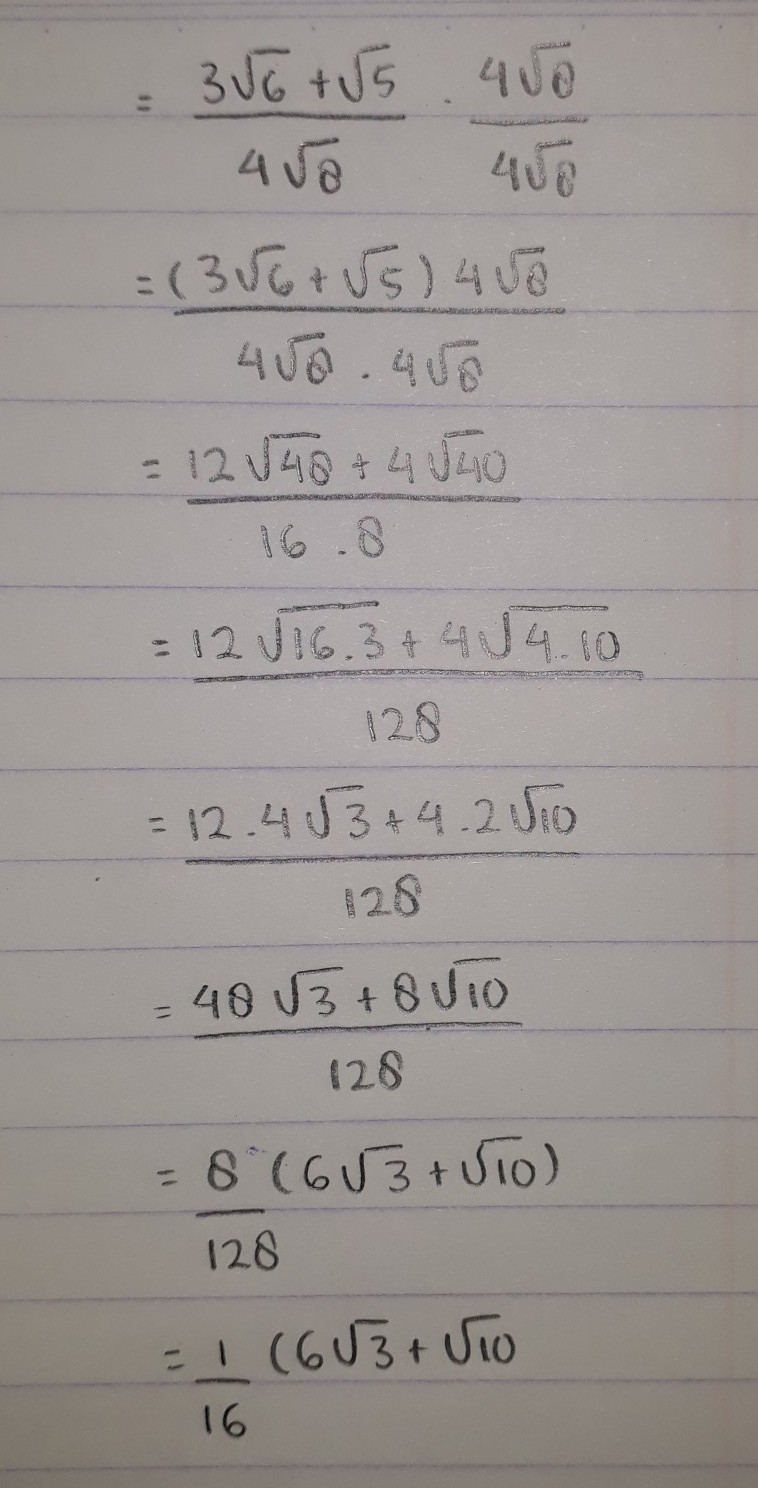 = 3√6 + √5 / 4√8 . 4√8 / 4√8
= (3√6 + √5) 4√8 / 4√8 . 4√8
= 12√48 + 4√40 / 16 . 8
= 12√16.3 + 4√4.10 / 128
= 12.4√3 + 4.2√10 / 128
= 48√3 + 8√10 / 128
= 8 / 128 (6√3 + √10)
= 1 / 16 (6√3 + √10